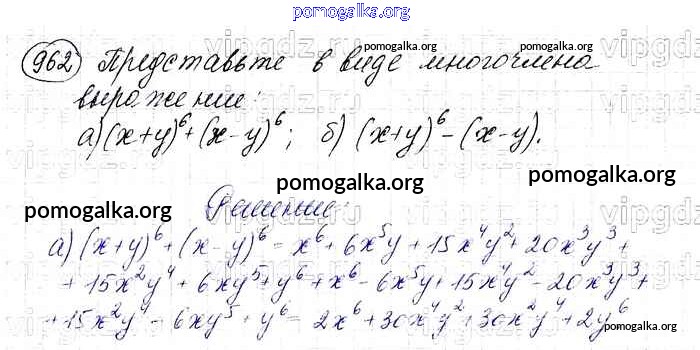 pomogalka.org
962 Представьте в виде многочлена
выражение:
а) (x+y)^6+(x-y)^6; б) (x+y)^6-(x-y).
Решение:
а) (x+y)^6+(x-y)^6 = x^6+6x^5y+15x^4y^2+20x^3y^3+
+15x^2y^4+6xy^5+y^6+x^6-6x^5y+15x^4y^2-20x^3y^3+
+15x^2y^4-6xy^5+y^6=2x^6+30x^4y^2+30x^2y^4+2y^6
pomogalka.org
pomogalka.org
pomogalka.org
pomogalka.org
pomogalka.org
pomogalka.org
pomogalka.org
vipgdz.ru
vipgdz.ru
vipgdz.ru